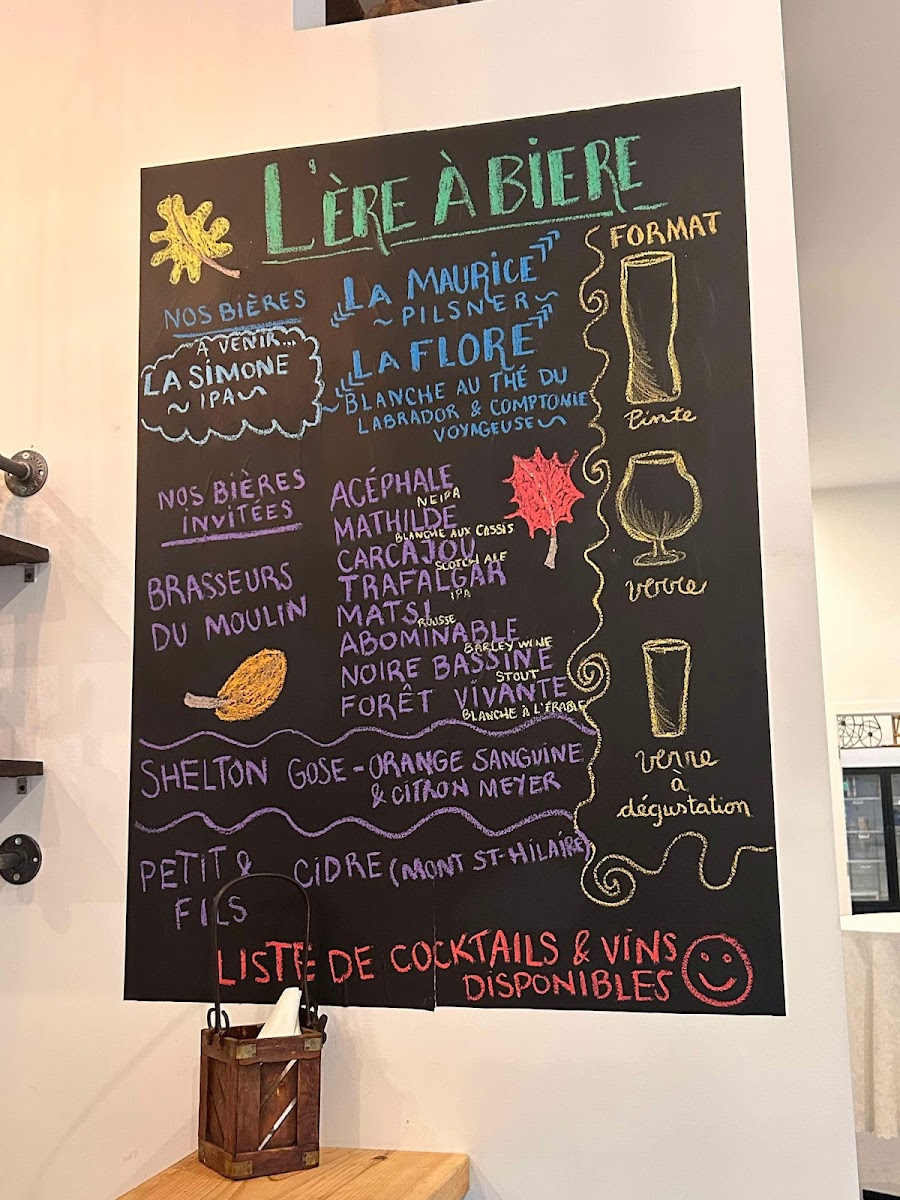 L'ÈRE À BIERE
NOS BIÈRES
LA MAURICE
~ PILSNER ~
LA FLORE
BLANCHE AU THÉ DU
LABRADOR & COMPTONIE
VOYAGEUSE ~
À VENIR...
LA SIMONE
~ IPA ~
NOS BIÈRES
INVITÉES
BRASSEURS
DU MOULIN
ACÉPHALE
NEIPA
MATHILDE
BLANCHE AUX CASSIS
CARCAJOU
SCOTCH ALE
TRAFALGAR
IPA
MATSI
ROUSSE
ABOMINABLE
BARLEY WINE
NOIRE BASSINE
STOUT
FORÊT VIVANTE
BLANCHE À L'ÉRABLE
SHELTON GOSE - ORANGE SANGUINE
& CITRON MEYER
PETIT & CIDRE (MONT ST-HILAIRE)
FILS
FORMAT
Pinte
verre
verre
à
dégustation
LISTE DE COCKTAILS & VINS
DISPONIBLES